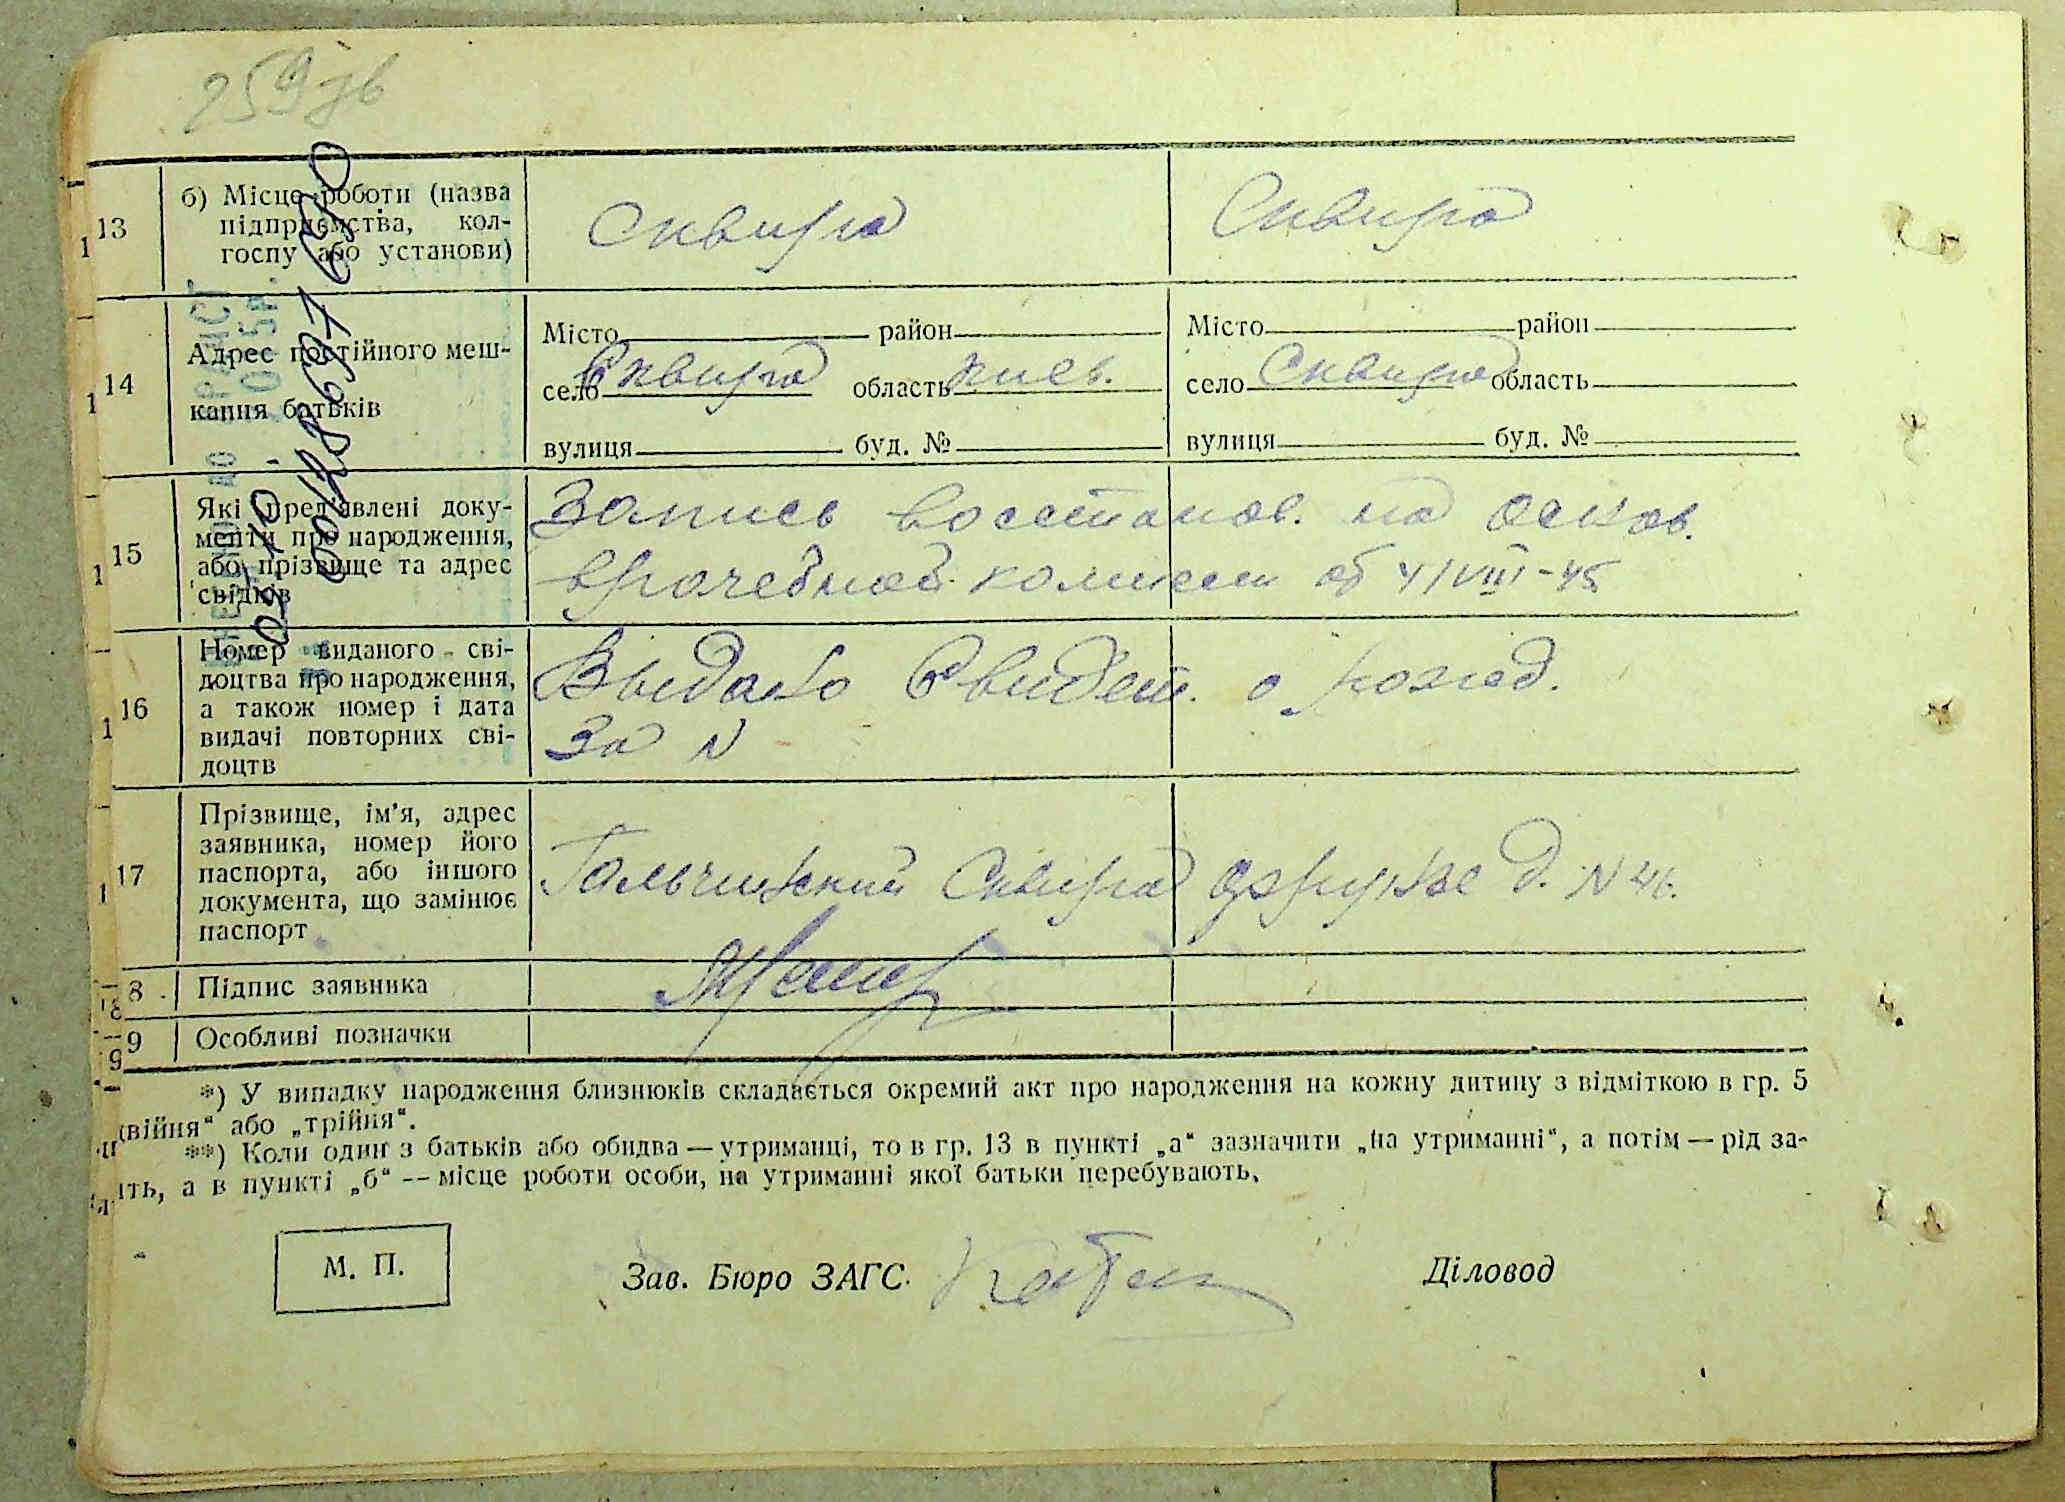 259 зв
13
б) Місце роботи (назва
підприємства, кол-
госпу або установи)
Сквира
Сквира
14
Адрес постійного меш-
кання батьків
Місто район
село Сквира область киев.
вулиця буд. №
Місто район
село Сквира область
вулиця буд. №
15
Які пред'явлені доку-
менти про народження,
або прізвище та адрес
свідків
Запись восстанов. на основ.
врачебной комисси от 4/VIII-45
16
Номер виданого сві-
доцтва про народження,
а також номер і дата
видачі повторних сві-
доцтв
Выдано Свидет. о рожд.
За N
17
Прізвище, ім'я, адрес
заявника, номер його
паспорта, або іншого
документа, що замінює
паспорт
Гальчинский Сквира д. N 46.
8 Підпис заявника
9 Особливі позначки
*) У випадку народження близнюків складається окремий акт про народження на кожну дитину з відміткою в гр. 5
війня" або „трійня".
**) Коли один з батьків або обидва — утриманці, то в гр. 13 в пункті „а" зазначити „на утриманні", а потім — рід за-
ить, а в пункті „б" -- місце роботи особи, на утриманні якої батьки перебувають.
М. П.
Зав. Бюро ЗАГС.
Діловод